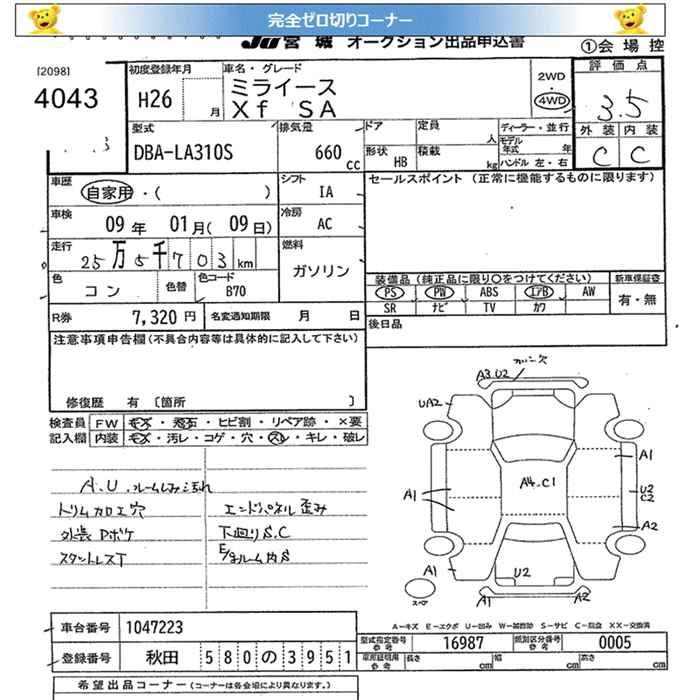 完全ゼロ切りコーナー
JU宮城 オークション出品申込書
①会場控
[2098]
4043
初度登録年月
H26 月
車名・グレード
ミライース
Xf SA
2WD
4WD
評価点
3.5
外装 内装
C C
型式
DBA-LA310S
排気量
660 cc
ドア
定員 人
形状 HB
積載 kg
ディーラー・並行
モデル年式 年
ハンドル 左・右
車歴
自家用・( )
シフト
IA
セールスポイント (正常に機能するものに限ります)
車検
09年 01月(09日)
冷房
AC
走行
25万5千703km
燃料
ガソリン
色
コン
色替
色コード
B70
装備品 (純正品に限り○をつけてください)
新車保証書
PS PW ABS エアB AW
有・無
SR ナビ TV カワ
R券 7,320円
名変通知期限 月 日
後日品
注意事項申告欄(不具合内容等は具体的に記入して下さい)
修復歴 有 [箇所 ]
検査員記入欄
FW キズ・飛石・ヒビ割・リペア跡・×要
内装 キズ・汚レ・コゲ・穴・スレ・キレ・破レ
A.U.ルームしみ汚れ
トリム加工穴
エンドパネル歪み
外装Pボケ
下回りS.C
スタットレスT
E/gルーム内S
ガバー欠
A3 U2
UA2
A1
A4.C1
A1
U2
C2
A2
A1
U2
A1
A2
スペア
A-キズ E-エクボ U-凹み W-補修跡 S-サビ C-腐食 XX-交換済
車台番号 1047223
型式指定番号 参考 16987
類別区分番号 参考 0005
登録番号 秋田 580の3951
車庫証明用 参考 長さ cm 幅 cm 高さ cm
希望出品コーナー (コーナーは各会場により異なります。)